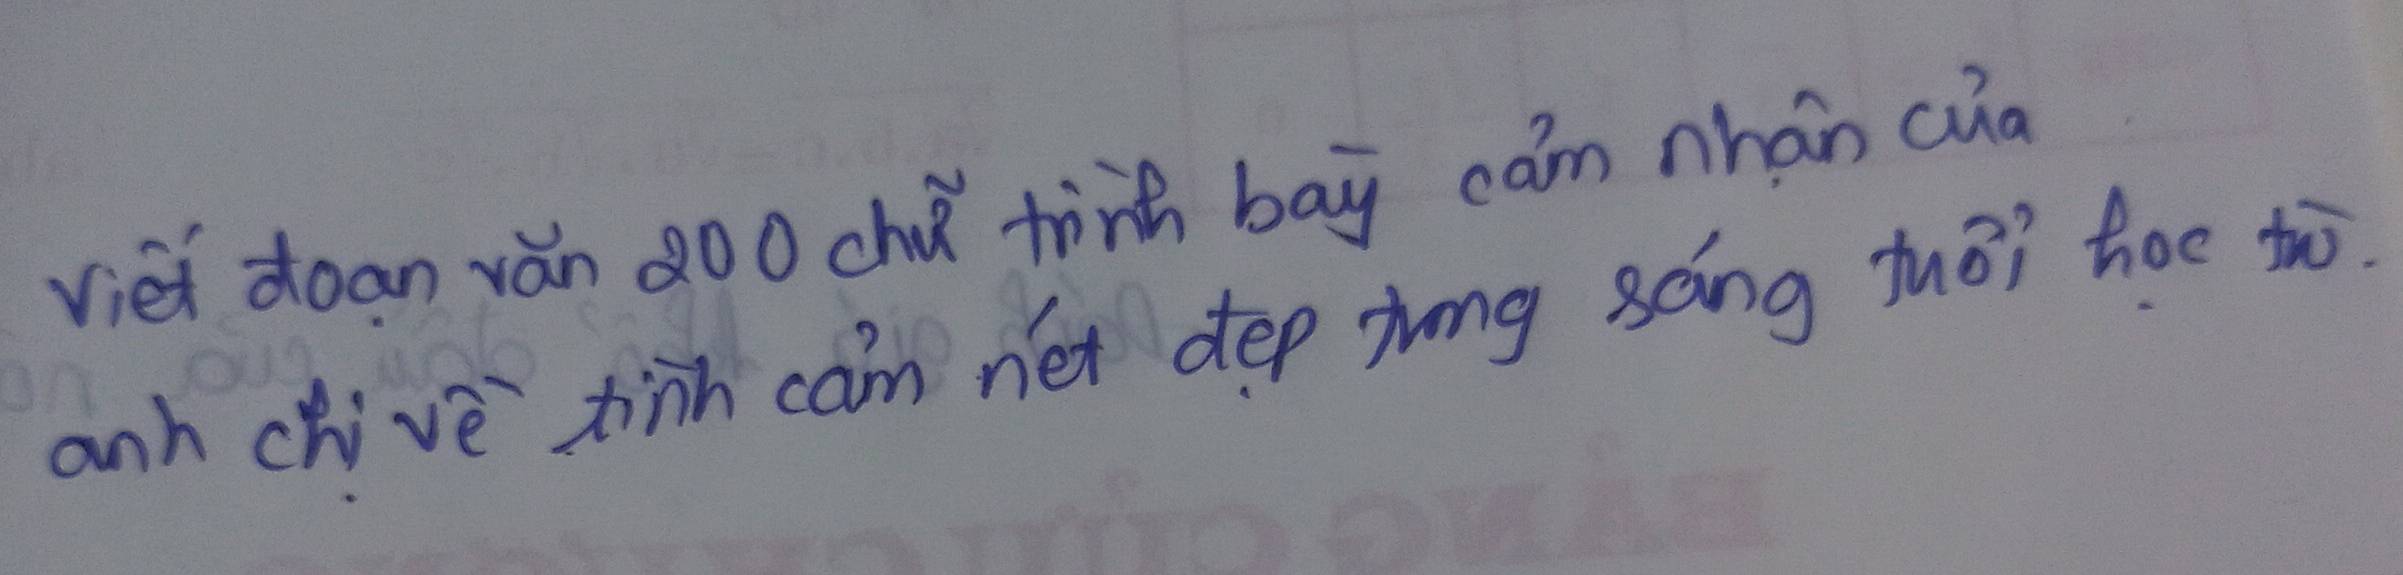 Viết đoạn văn 200 chữ trình bày cảm nhận của
anh chị về tình cảm nét đẹp trong sáng tuổi học trò.